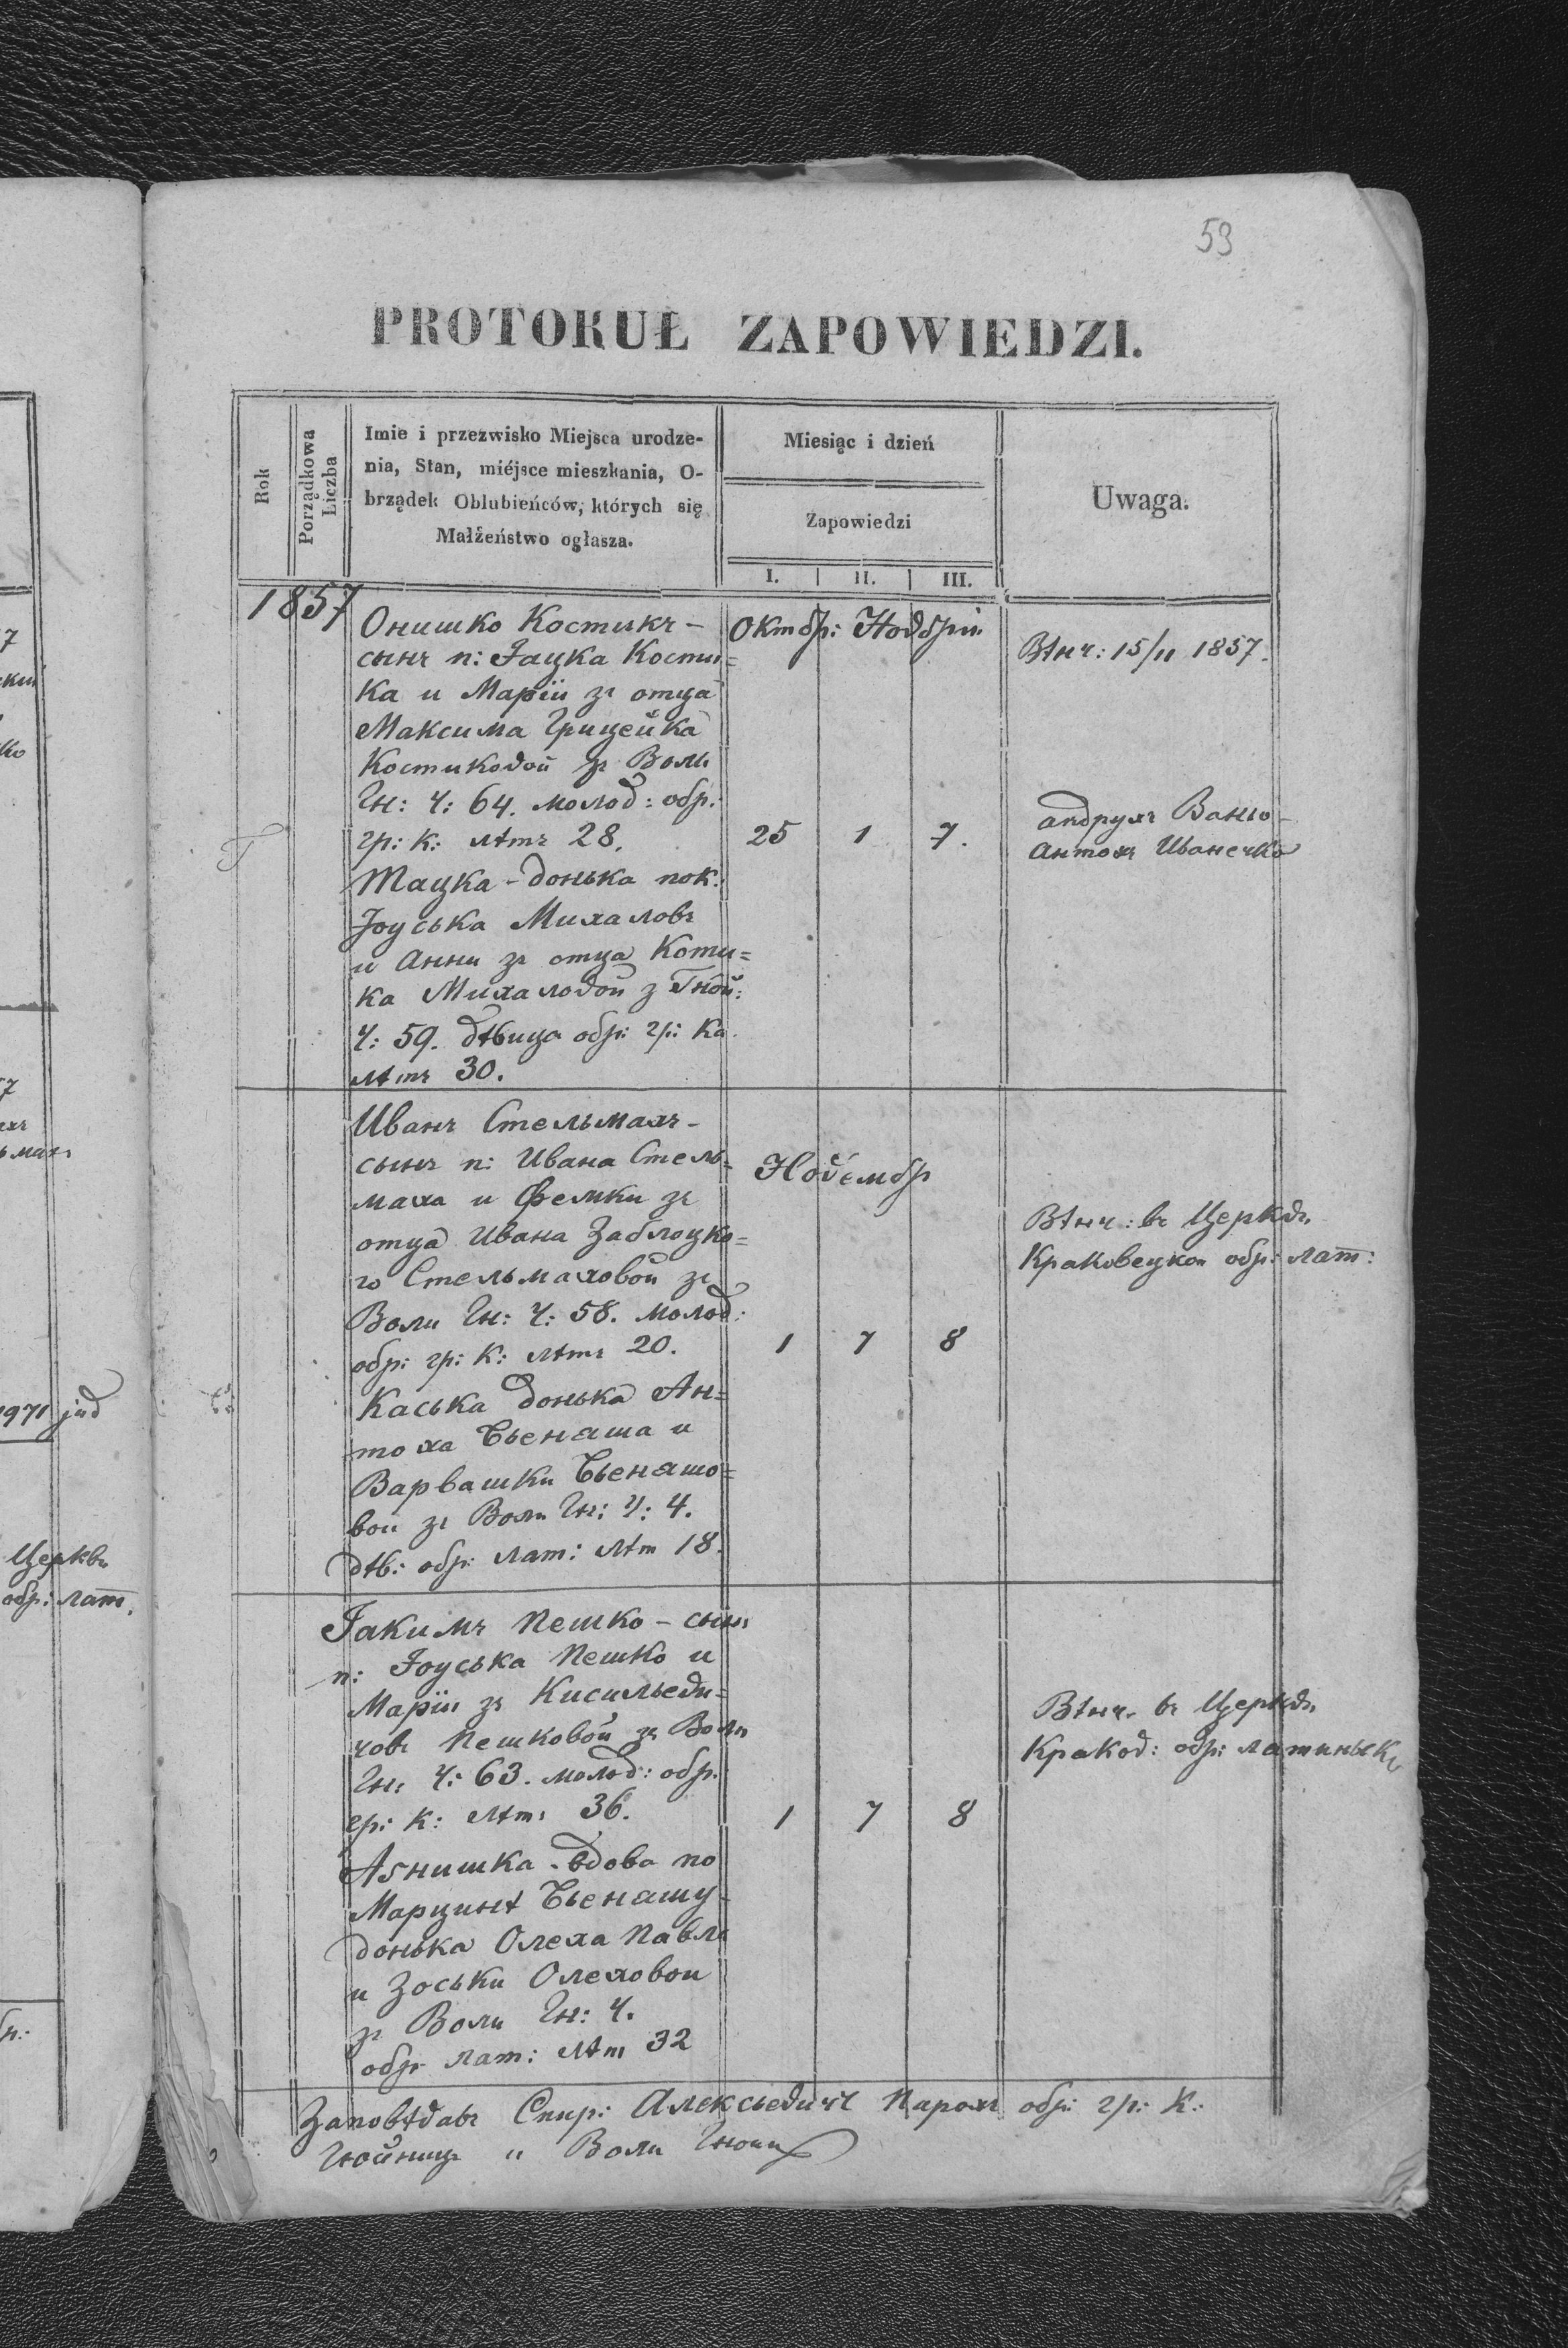 53
PROTOKUŁ ZAPOWIEDZI.
Rok
Porządkowa Liczba
Imie i przezwisko Miejsca urodze-
nia, Stan, miéjsce mieszkania, O-
brządek Oblubieńców, których się
Małżeństwo ogłasza.
Miesiąc i dzień
Zapowiedzi
I. II. III.
Uwaga.
1857
Онишко Костикъ -
сынъ п: Яацка Кости=
ка и Маріи зъ отца
Максима Грицейка
Костиковой зъ Воли
Гн: Ч: 64. молод: обр:
гр: к: лѣтъ 28.
Мацка - донька пок:
Іоуська Михаловъ
и Анни зъ отца Коти=
ка Михаловой з Гной:
Ч: 59. дѣвица обр: гр: Ка.
лѣтъ 30.
Октбр: Новбрій
25 1 7.
Вѣнч: 15/11 1857.
Андрухъ Ваньо -
Антохъ Иванечко
Иванъ Стельмахъ -
сынъ п: Ивана Стель-
маха и Фемки зъ
отца Ивана Заблоцко=
го Стельмаховой зъ
Воли Гн: Ч: 58. молод:
обр: гр: К: лѣтъ 20.
Каська донька Ан=
тоха Бьенаша и
Варвашки Бьенашо=
вои зъ Воли Гн: Ч: 4.
дѣв: обр: лат: лѣт 18.
Новембр
1 7 8
Вѣнч: въ Церкви
Краковецкои обр: лат:
Іакимъ Пешко - сынъ
п: Іоуська Пешко и
Маріи зъ Кисильеви=
човъ Пешковой зъ Воли
Гн: Ч: 63. молод: обр:
гр: К: лѣтъ 36.
Аґнишка - вдова по
Марцинѣ Бьенашу -
донька Олеха Павли
и Зоськи Олеховои
зъ Воли Гн: 4.
обр лат: лѣт 32
1 7 8
Вѣнч. въ Церкви
Краков: обр: латиньск
Заповѣдавъ Спир: Алексьевичъ Парохъ обр: гр: К:
Гнойницъ и Воли Гнои